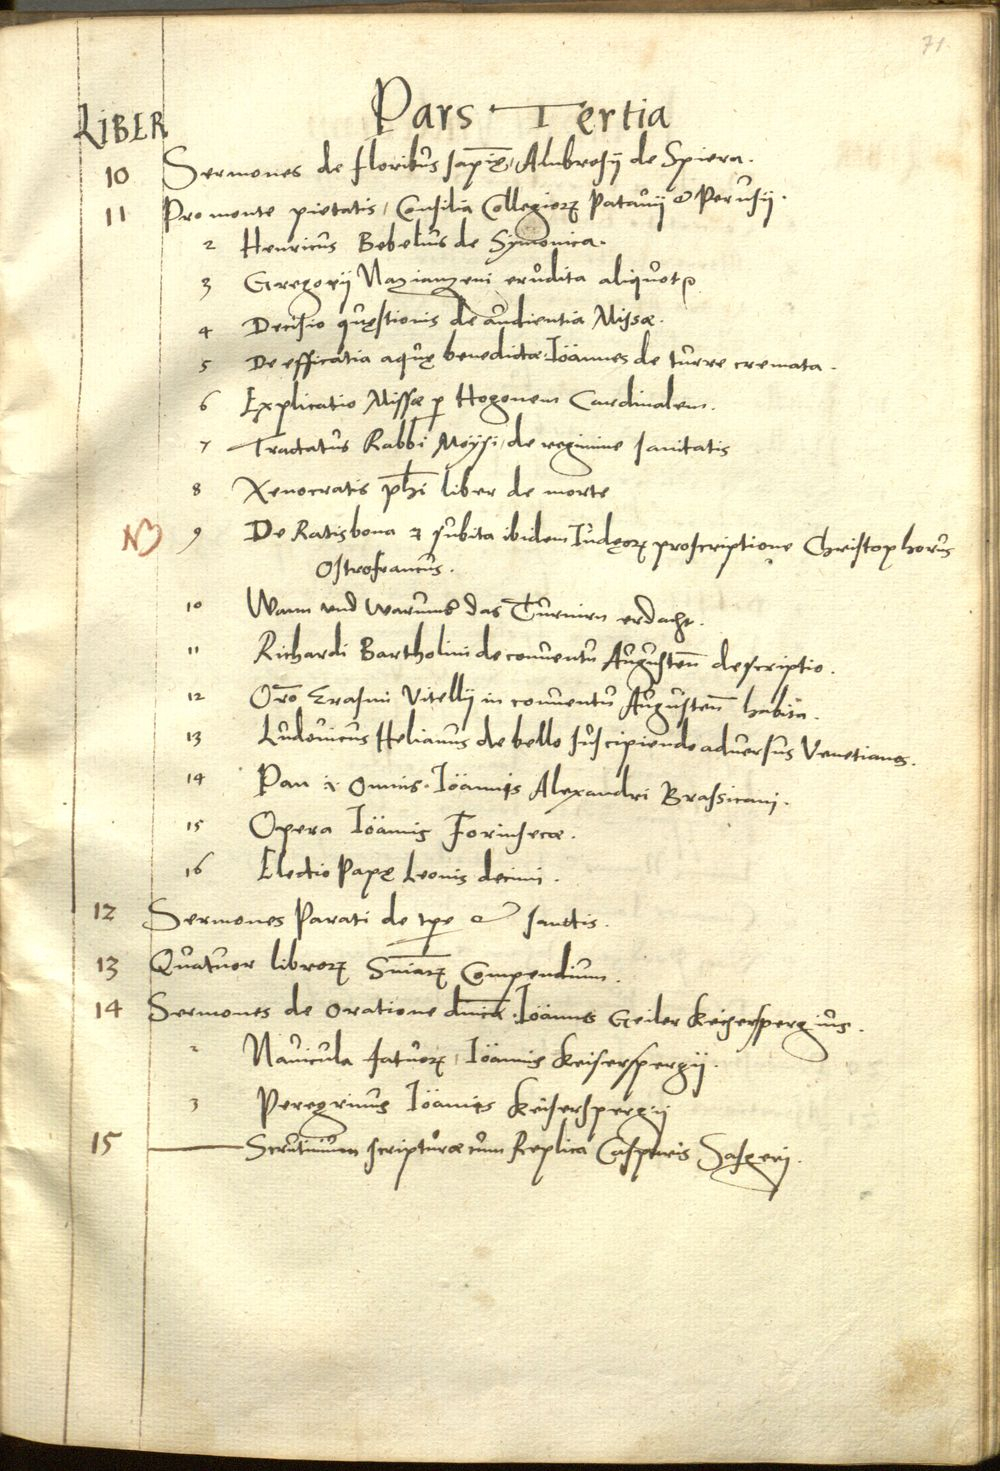 71.
Pars Tertia
LIBER
10 Sermones de floribus sapīę, Ambrosij de Spiera.
11 Pro monte pietatis, Consilia Collegioꝝ Patauij & Perusij.
2 Henricus Bebelius de Symonica.
3 Gregorij Nazianzeni erudita aliquot
4 Decisio quęstionis de audientia Missæ.
5 De efficatia aquę benedictæ. Ioannes de turre cremata.
6 Explicatio Missæ ꝑ Hogonem Cardinalem.
7 Tractatus Rabbi Moysi, de regimine sanitatis
8 Xenocratis phī liber de morte
NB 9 De Ratisbona & subita ibidem Iudęoꝝ proscriptione Christophorus
Ostrofrancus.
10 Wann vnd warumb das Turnirn erdacht.
11 Richardi Bartholini de conuentu Augusteñ descriptio.
12 Orō Erasmi Vitellij in conuentu Augusteñ habita.
13 Ludouicus Helianus de bello suscipiendo aduersus Venetianos.
14 Pan Omnis. Ioannis Alexandri Brassicani.
15 Opera Ioannis Forinsecæ.
16 Electio Papę Leonis decimi.
12 Sermones Parati de tpe & sanctis.
13 Quatuor libroꝝ Sniaꝝ Compendium.
14 Sermones de oratione dnīca. Ioannes Geiler Keiserspergius.
2 Nauicula fatuoꝝ, Ioannis Keiserspergij.
3 Peregrinus Ioannis Keiserspergij
15 Scrutinium scripturæ cum Replica Casparis Sasgerj.